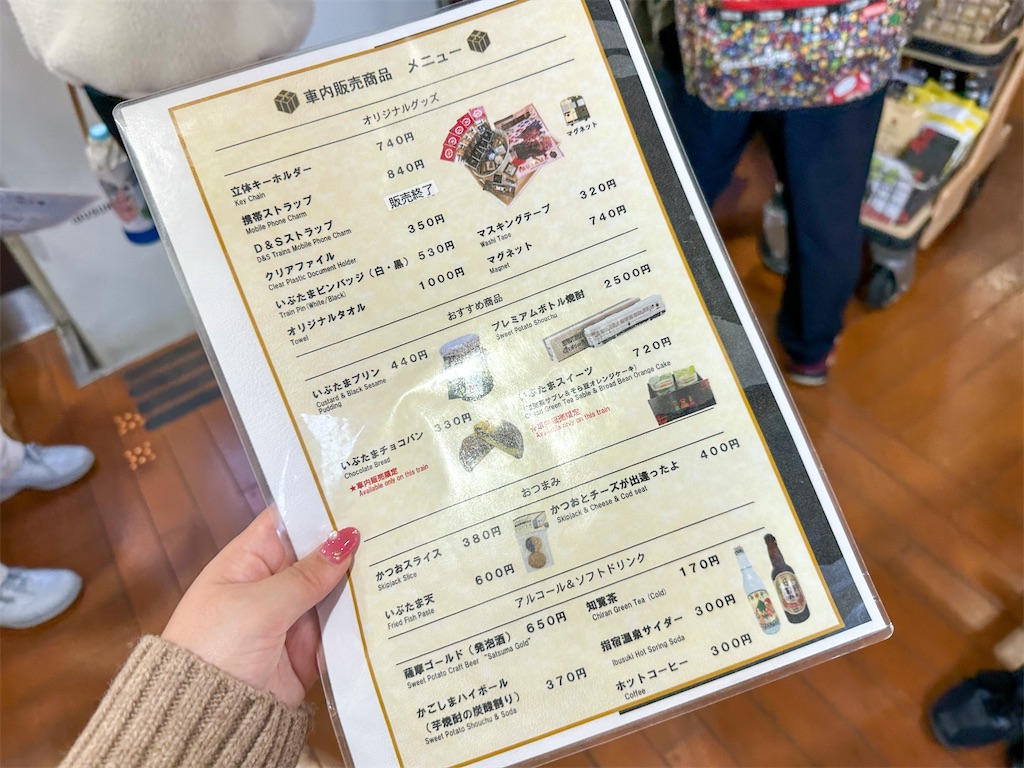 車内販売商品 メニュー
オリジナルグッズ
立体キーホルダー 740円
Key Chain
携帯ストラップ 840円
Mobile Phone Charm
D&Sストラップ 販売終了
D&S Trains Mobile Phone Charm
クリアファイル 350円
Clear Plastic Document Holder
いぶたまピンバッジ(白・黒) 530円
Train Pin (White/Black)
オリジナルタオル 1000円
Towel
マグネット
マスキングテープ 320円
Washi Tape
マグネット 740円
Magnet
おすすめ商品
いぶたまプリン 440円
Custard & Black Sesame
Pudding
プレミアムボトル焼酎 2500円
Sweet Potato Shouchu
いぶたまチョコパン 330円
Chocolate Bread
★車内販売限定
Available only on this train
いぶたまスイーツ 720円
サブレ&そら豆オレンジケーキ)
Green Tea Sable & Broad Bean Orange Cake
★車内販売限定
Available only on this train
おつまみ
かつおスライス 380円
Skipjack Slice
いぶたま天 600円
Fried Fish Paste
かつおとチーズが出逢ったよ 400円
Skipjack & Cheese & Cod seat
アルコール&ソフトドリンク
薩摩ゴールド(発泡酒) 650円
Sweet Potato Craft Beer "Satsuma Gold"
かごしまハイボール 370円
(芋焼酎の炭酸割り)
Sweet Potato Shouchu & Soda
知覧茶 170円
Chiran Green Tea (Cold)
指宿温泉サイダー 300円
Ibusuki Hot Spring Soda
ホットコーヒー 300円
Coffee